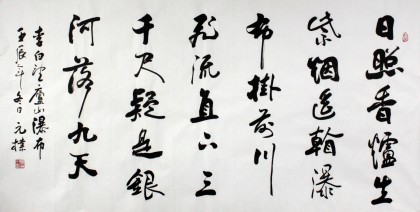 日照香爐生
紫烟遥看瀑
布掛前川
飛流直下三
千尺疑是銀
河落九天
李白望廬山瀑布
壬辰年冬日 元樸